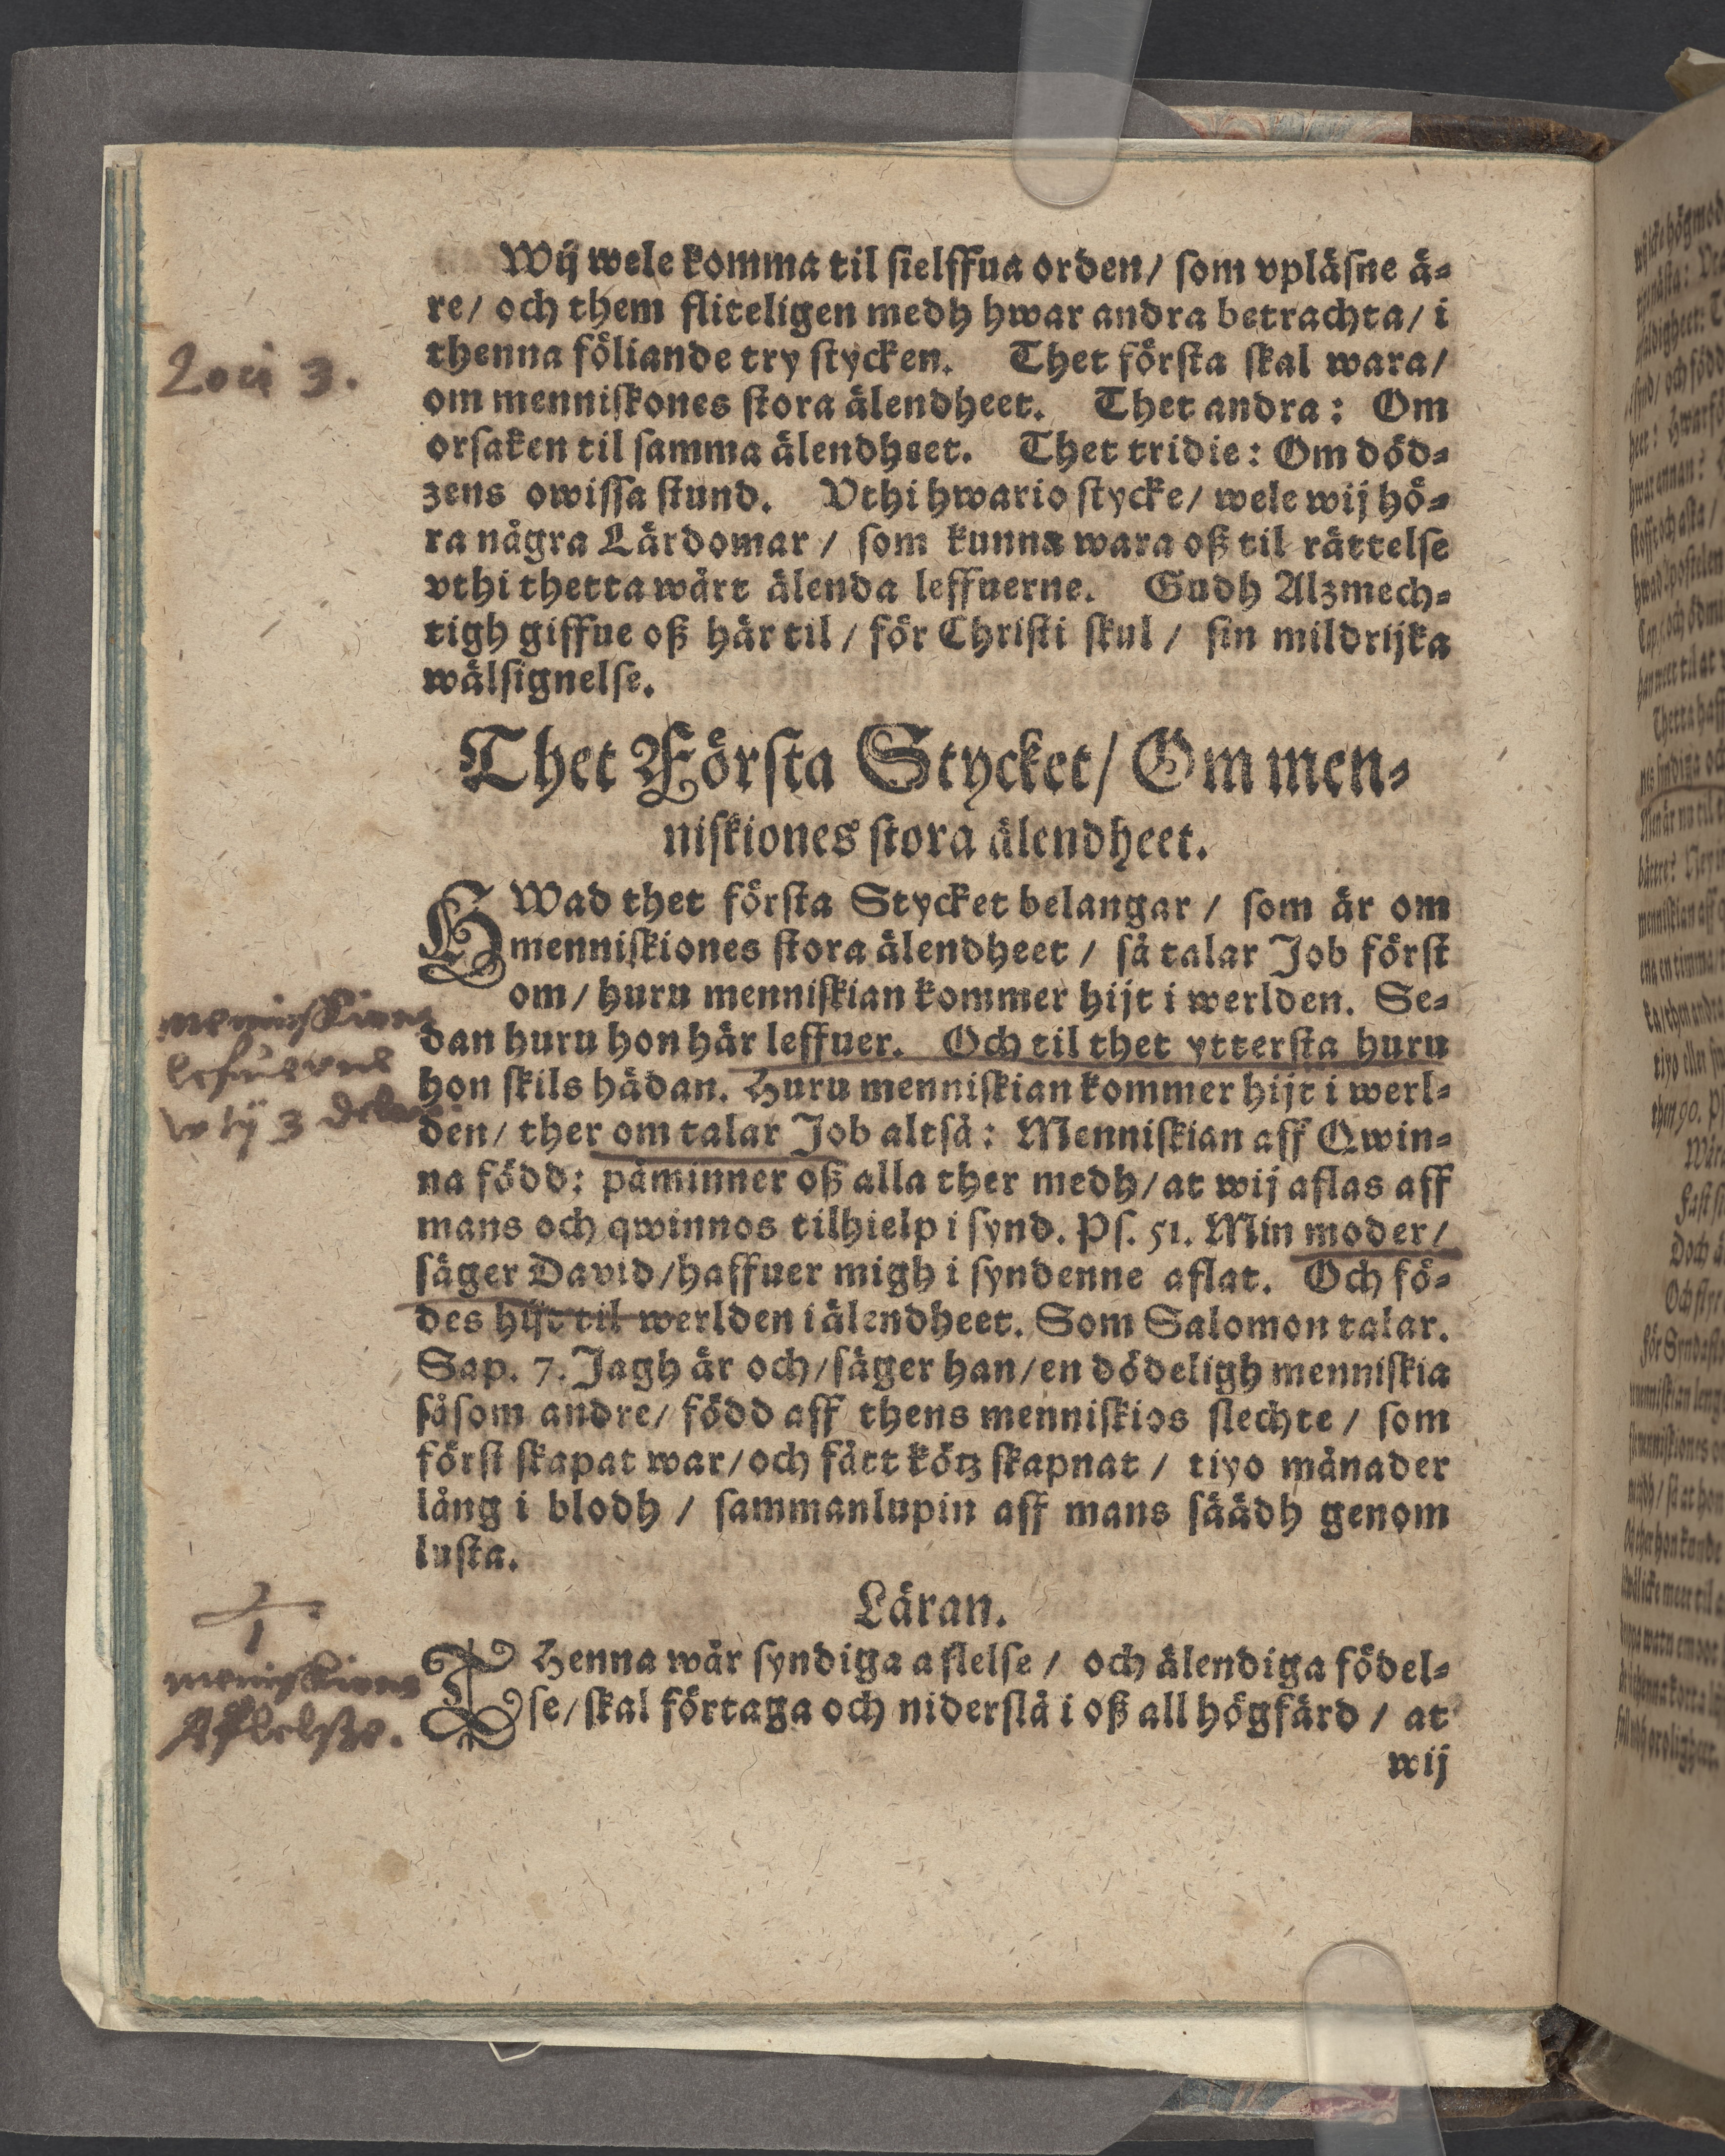 Wij wele komma til sielffua orden/ som vpläsne ä-
re/ och them fliteligen medh hwar andra betrachta/ i
thenna föliande try stycken. Thet första skal wara/
Loci 3.
om menniskones stora älendheet. Thet andra: Om
orsaken til samma älendheet. Thet tridie: Om död-
zens owissa stund. Vthi hwario stycke/ wele wij hö-
ra några Lärdomar / som kunna wara oß til rättelse
vthi thetta wårt älenda leffuerne. Gudh Alzmech-
tigh giffue oß här til / för Christi skul / sin mildrijka
wälsignelse.
Thet Första Stycket/ Om men-
niskiones stora älendheet.
HWad thet första Stycket belangar / som är om
menniskiones stora älendheet / så talar Job först
om/ huru menniskian kommer hijt i werlden. Se-
menniskiones
lefuerne
vthij 3 delar.
dan huru hon här leffuer. Och til thet ytterst­a huru
hon skils hädan. Huru menniskian kommer hijt i werl-
den/ ther om talar Job altså: Menniskian aff Qwin-
na född: påminner oß alla ther medh/ at wij aflas aff
mans och qwinnos tilhielp i synd. Ps. 51. Min moder/
säger David/haffuer migh i syndenne aflat. Och fö-
des hijt til werlden i älendheet. Som Salomon talar.
Sap. 7. Jagh är och/säger han/en dödeligh menniskia
såsom andre/ född aff thens menniskios slechte / som
först skapat war/och fått kötz skapnat / tiyo månader
lång i blodh / sammanlupin aff mans säädh genom
lusta.
Läran.
1
menniskiones
Aflelsze.
THenna wår syndiga aflelse / och älendiga födel-
se/skal förtaga och niderslå i oß all högfärd / at
wij